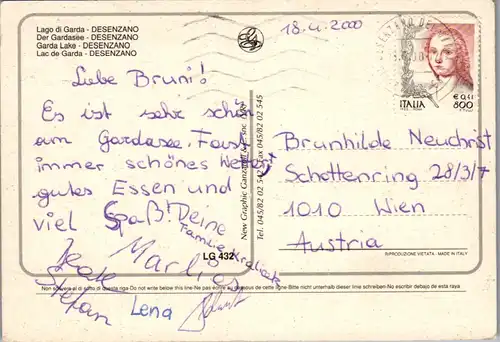 Lago di Garda - DESENZANO
Der Gardasee - DESENZANO
Garda Lake - DESENZANO
Lac de Garda - DESENZANO
18.4.2000
ITALIA
€ 0,41
800
Liebe Bruni!
Es ist sehr schön
am Gardasee. Fast
immer schönes Wetter,
gutes Essen und
viel Spaß! Deine
Familie
Marlies
Beate
Stefan
Lena
Brunhilde Neuchrist
Schottenring 28/3/7
1010 Wien
Austria
New Graphic
Tel. 045/82 02 542 Fax 045/82 02 545
LG 432
RIPRODUZIONE VIETATA - MADE IN ITALY
Non scrivere al di sotto di questa riga-Do not write below this line-Ne pas écrire au dessous de cette ligne-Bitte nicht unterhalb dieser linie schreiben-No escribir debajo de esta raya